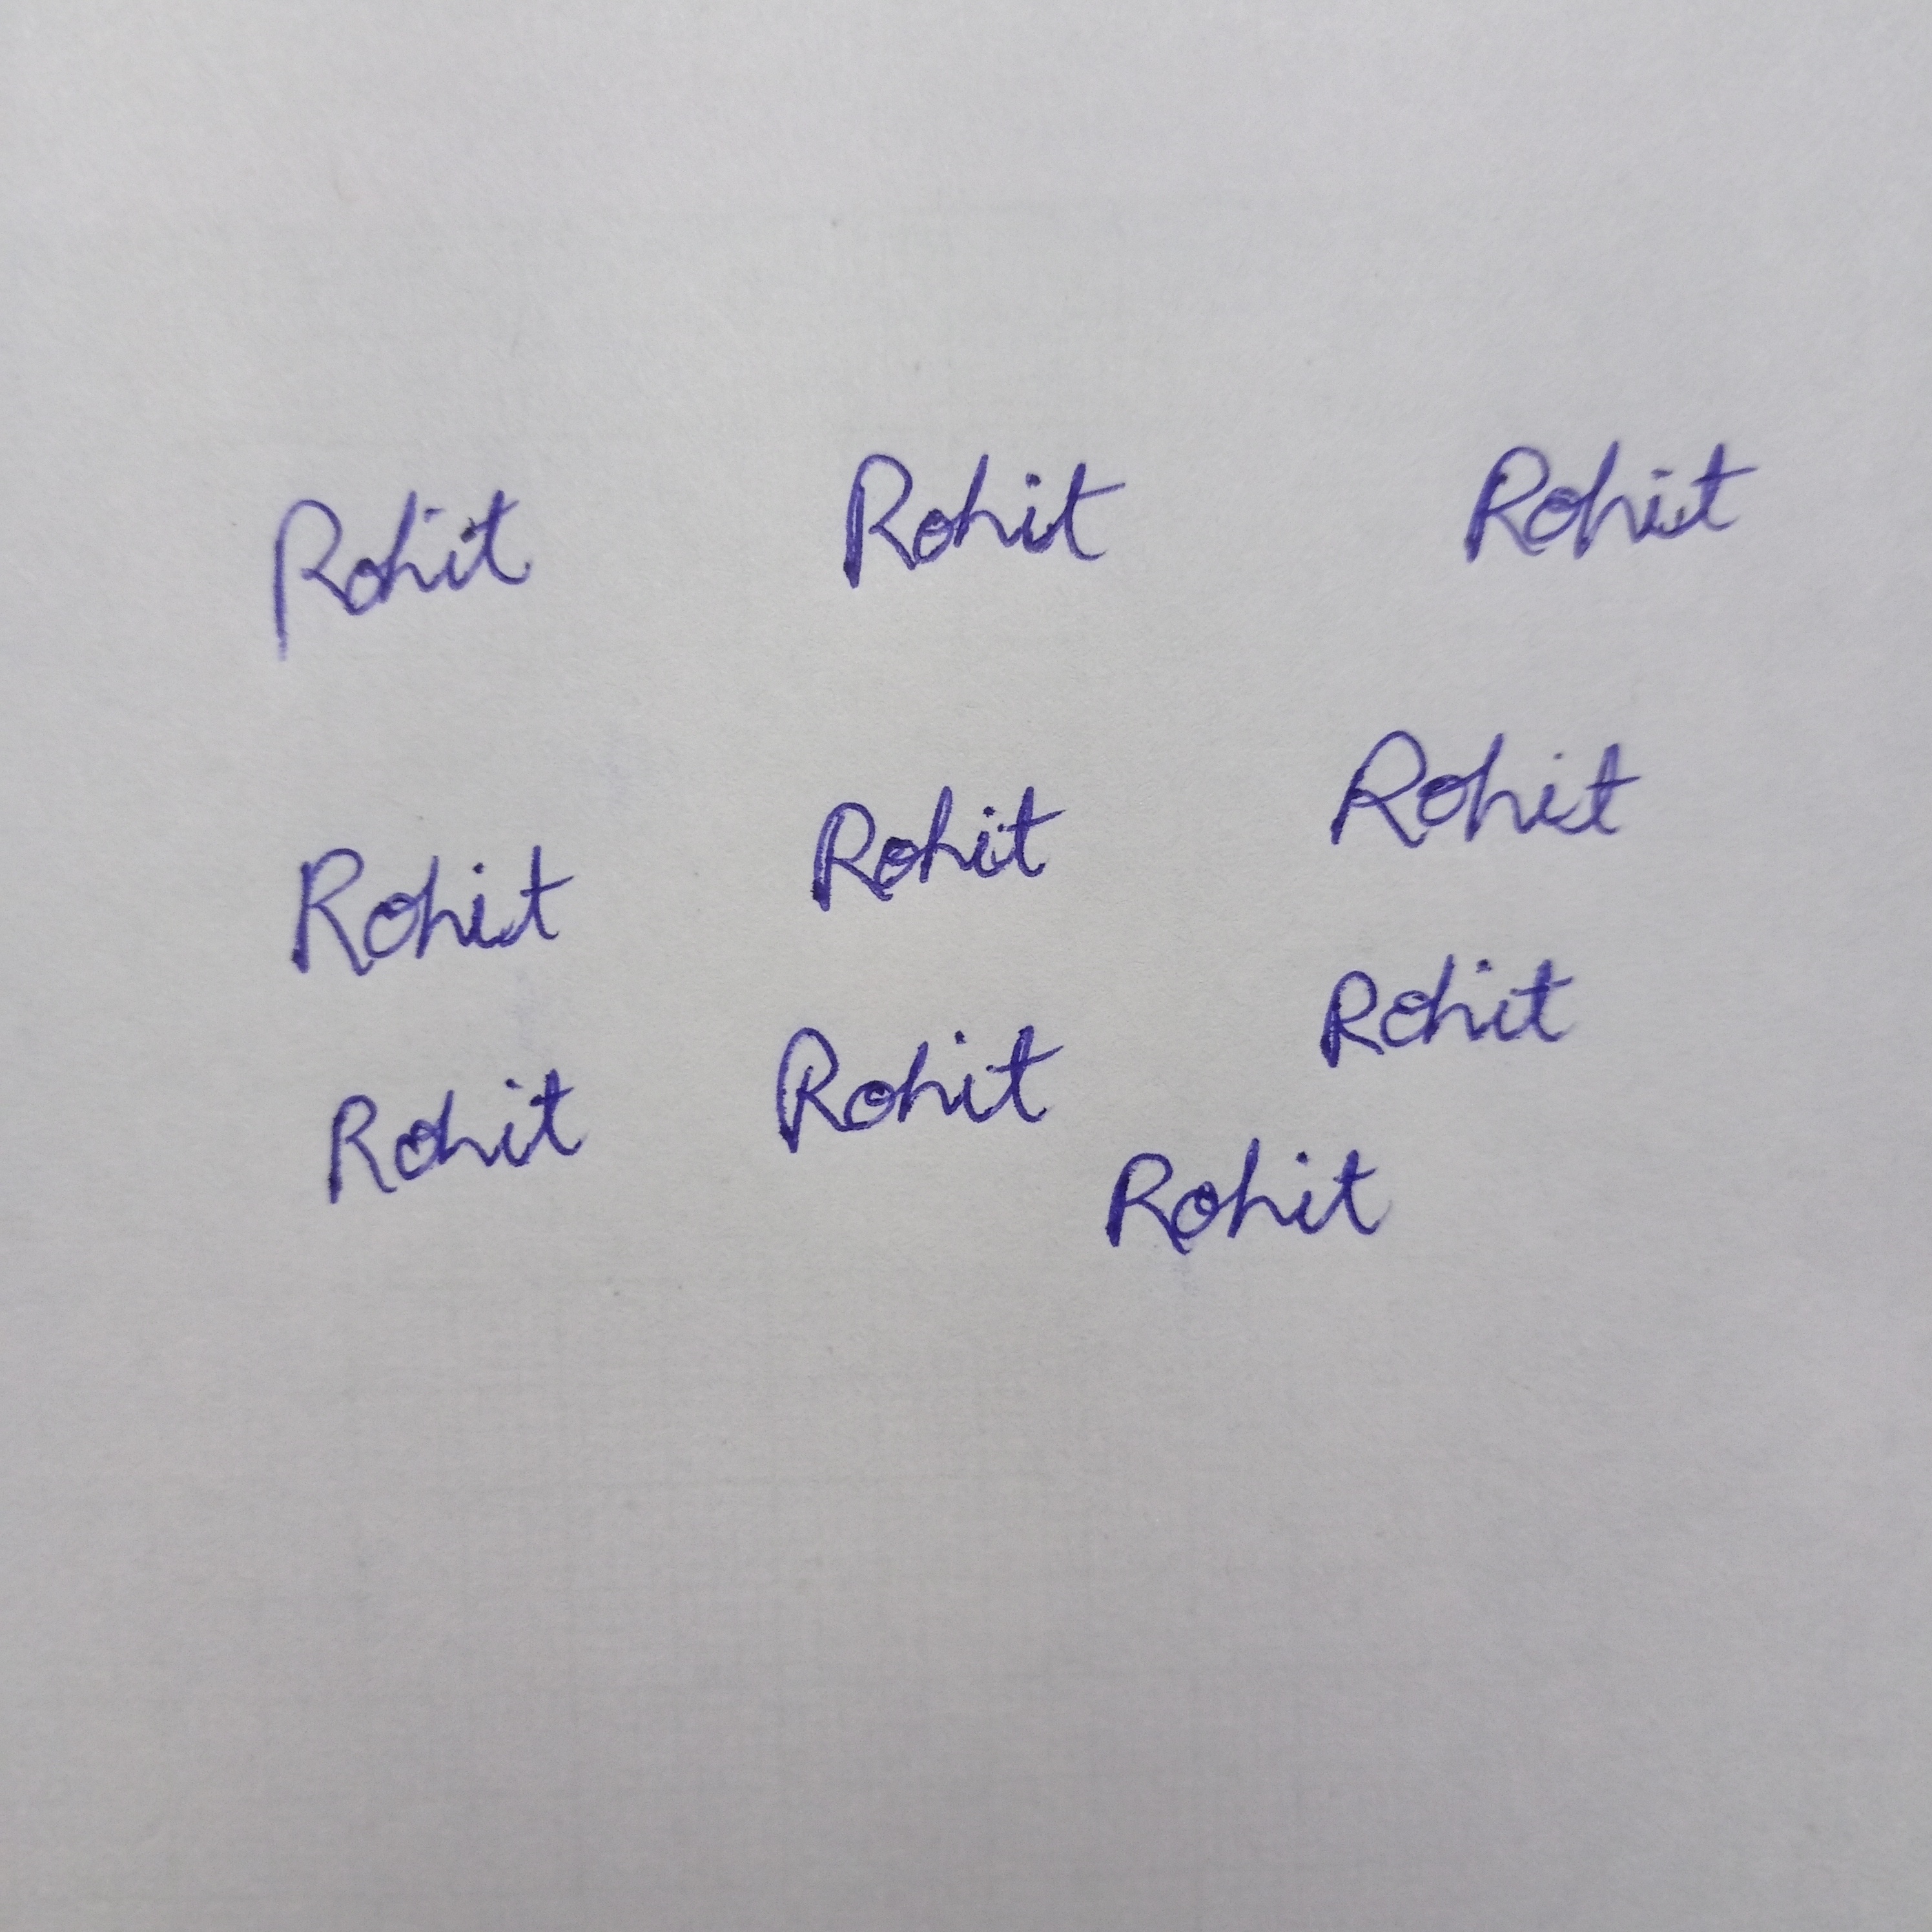 Rohit Rohit Rohit
Rohit Rohit Rohit
Rohit Rohit Rohit
Rohit